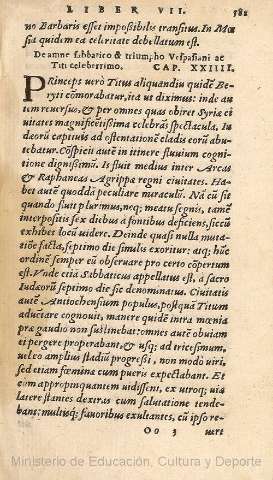 LIBER VII. 581
no Barbaris esset impoßibilis transitus. In Mœ
sia quidem ea celeritate debellatum est.
De amne sabbatico & triumpho Vespasiani ac
Titi celeberrimo. CAP. XXIIII.
PRinceps uerò Titus aliquandiu quidẽ Be-
ryti cõmorabatur, ita ut diximus: inde au
tem reuersus, & per omnes quas obiret Syriæ ci
uitates magnificẽtißima celebrãs spectacula, Iu
dæorũ captiuis ad ostentationẽ cladis eorũ abu-
tebatur. Cõspicit autẽ in itinere fluuium cogni-
tione dignißimũ. Is fluit medius inter Arcas
& Raphaneas Agrippæ regni ciuitates. Ha-
bet autẽ quoddã peculiare miraculũ. Nã cũ sit
quando fluit plurimus, neq; meatu segnis, tamẽ
interpositis sex diebus à fontibus deficiens, siccũ
exhibet locũ uidere. Deinde quasi nulla muta-
tiõe facta, septimo die similis exoritur: atq; hũc
ordinẽ semper eũ obseruare pro certo cõpertum
est. Vnde etiã Sabbaticus appellatus est, à sacro
Iudæorũ septimo die sic denominatus. Ciuitatis
autẽ Antiochensium populus, postquã Titum
aduẽtare cognouit, manere quidẽ intra mœnia
præ gaudio non sustinebat: omnes autẽ obuiam
ei pergere properabant, & usq; ad tricesimum,
uel eo amplius stadiũ progreßi, non modò uiri,
sed etiam fœminæ cum pueris expectabant. Et
cum appropinquantem uidissent, ex utroq; uiæ
latere stantes dextras cum salutatione tende-
bant: multisq; fauoribus exultantes, cũ ipso re-
Oo 3 uert
Ministerio de Educación, Cultura y Deporte